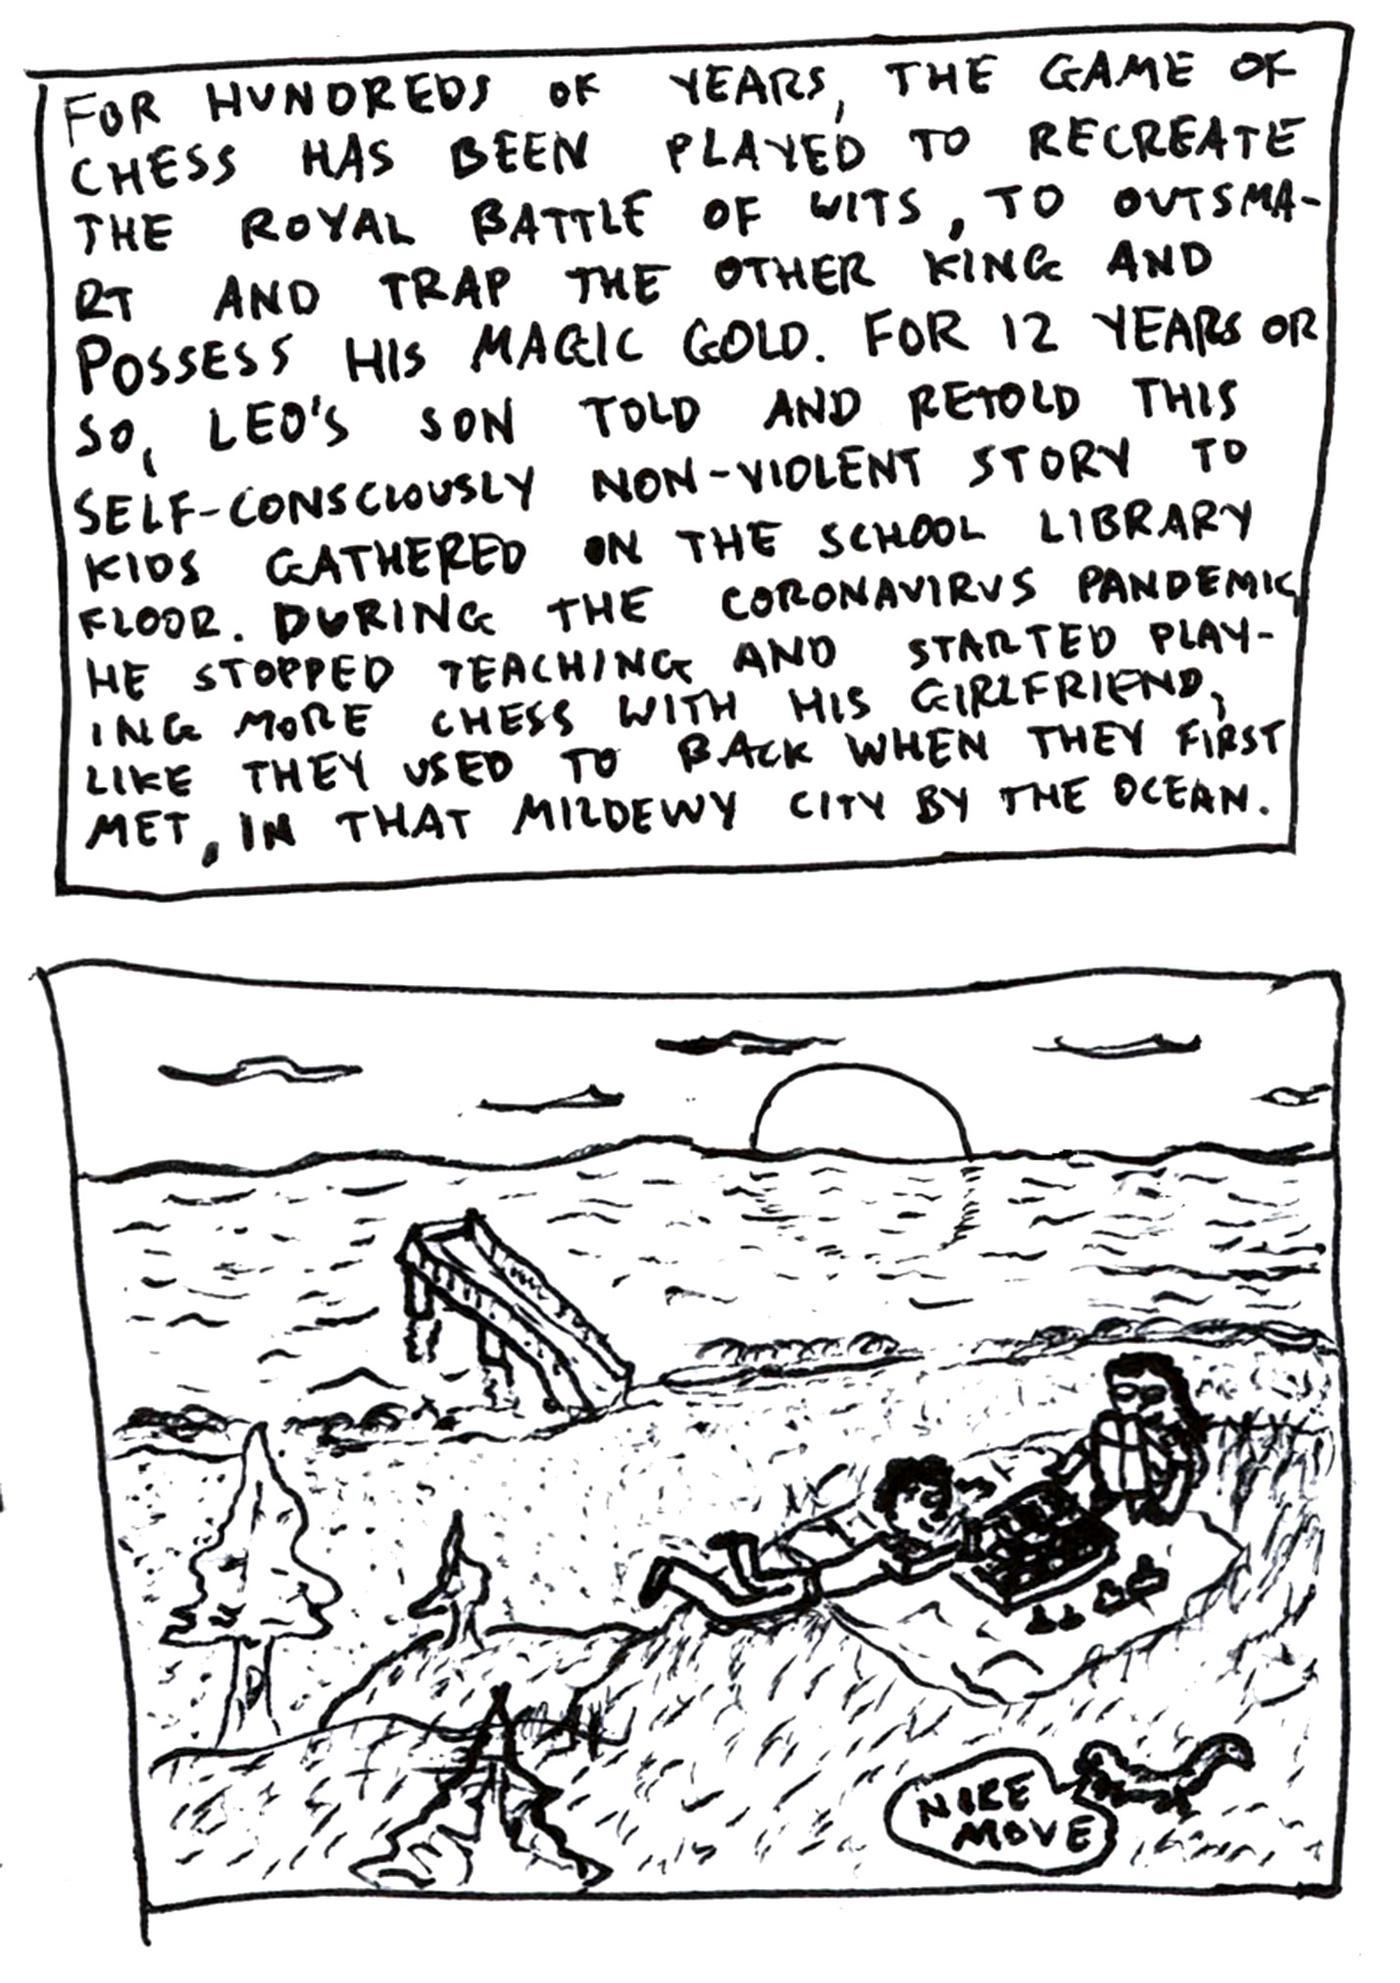 FOR HUNDREDS OF YEARS, THE GAME OF
CHESS HAS BEEN PLAYED TO RECREATE
THE ROYAL BATTLE OF WITS, TO OUTSMA-
RT AND TRAP THE OTHER KING AND
POSSESS HIS MAGIC GOLD. FOR 12 YEARS OR
SO, LEO'S SON TOLD AND RETOLD THIS
SELF-CONSCIOUSLY NON-VIOLENT STORY TO
KIDS GATHERED ON THE SCHOOL LIBRARY
FLOOR. DURING THE CORONAVIRUS PANDEMIC,
HE STOPPED TEACHING AND STARTED PLAY-
ING MORE CHESS WITH HIS GIRLFRIEND,
LIKE THEY USED TO BACK WHEN THEY FIRST
MET, IN THAT MILDEWY CITY BY THE OCEAN.
NICE
MOVE